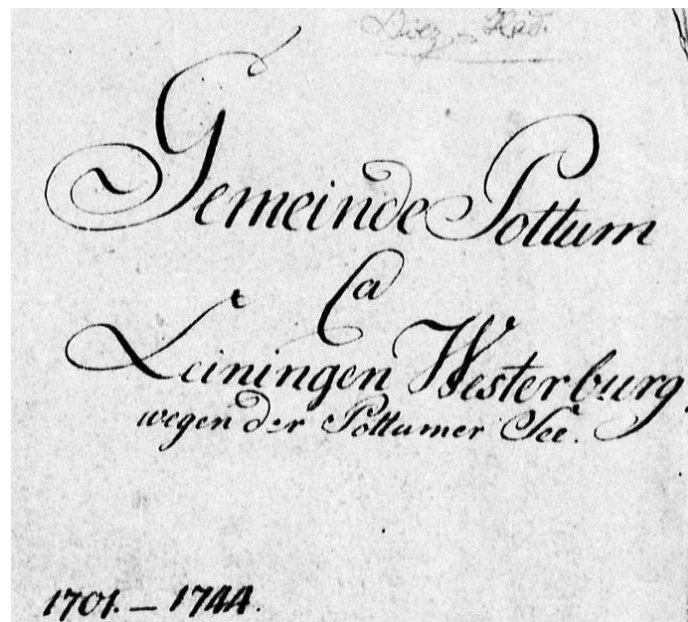 Gemeinde Pottum
Ca
Leiningen Westerburg.
wegen der Pottumer See.
1701. – 1744.